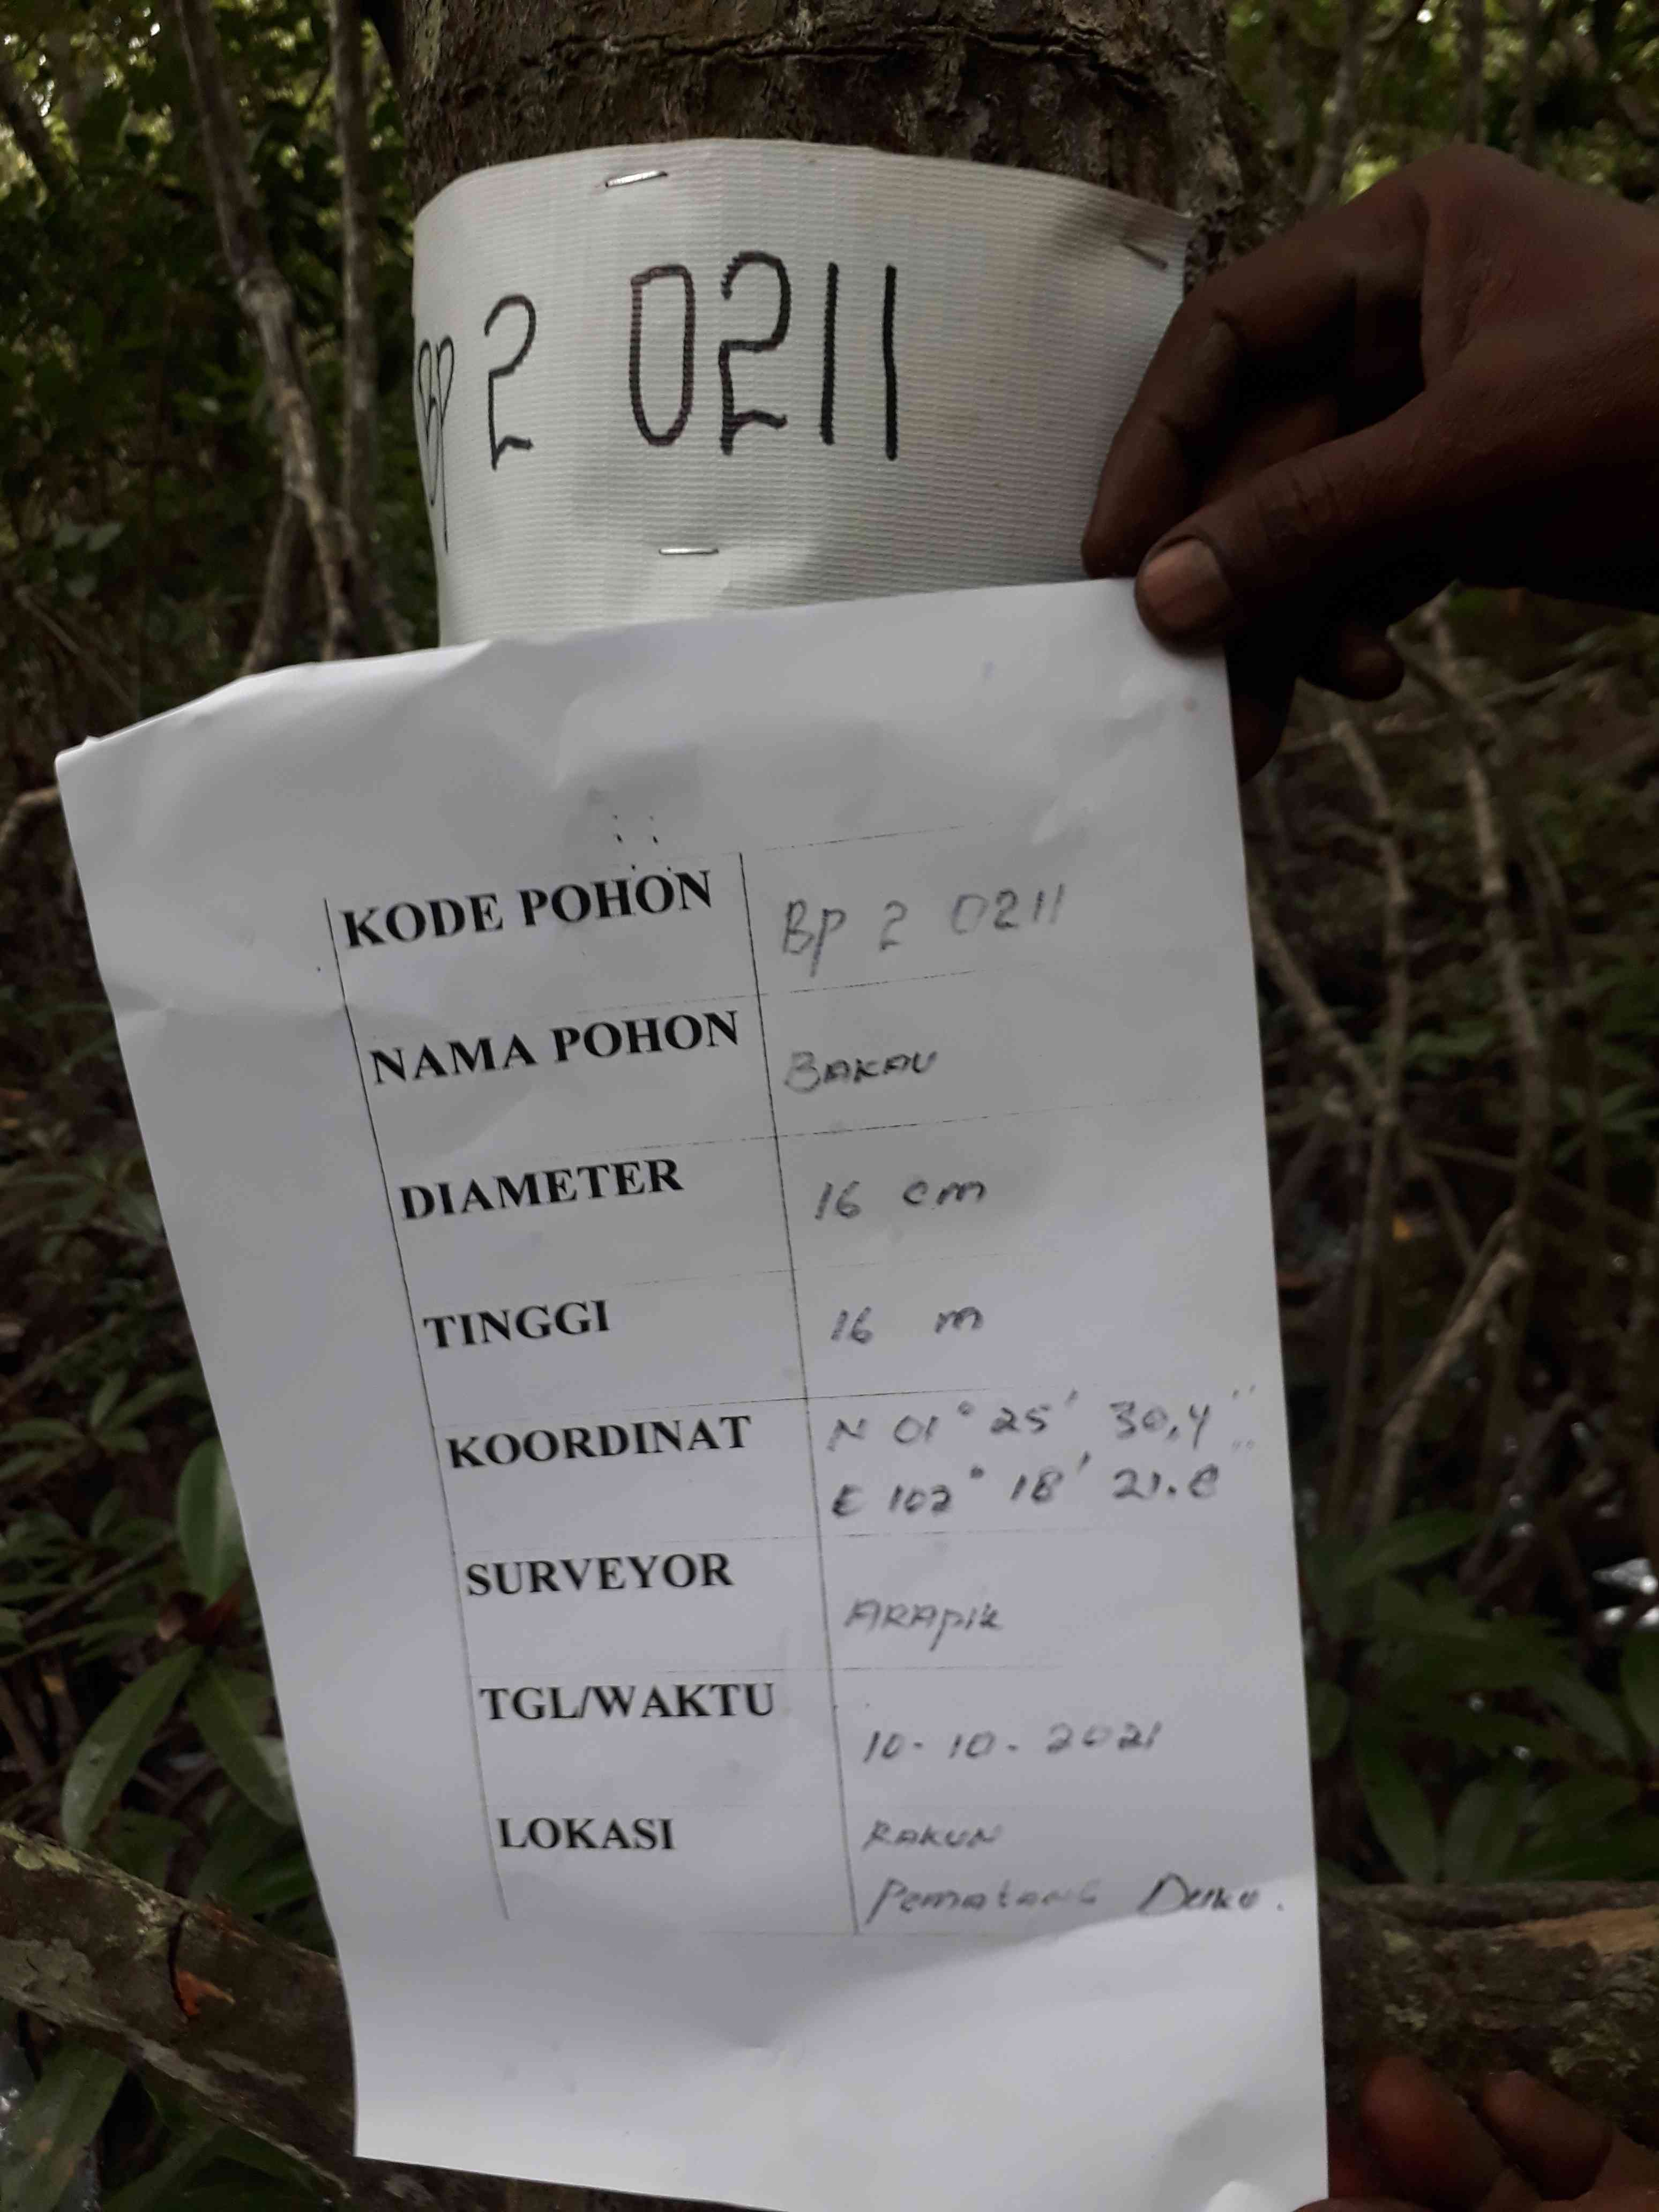 BP 2 0211
KODE POHON BP 2 0211
NAMA POHON BAKAU
DIAMETER 16 cm
TINGGI 16 m
KOORDINAT N 01° 25' 30,4"
E 102° 18' 21.8"
SURVEYOR ARApik
TGL/WAKTU 10-10-2021
LOKASI RAKUN
Pematang Duku.